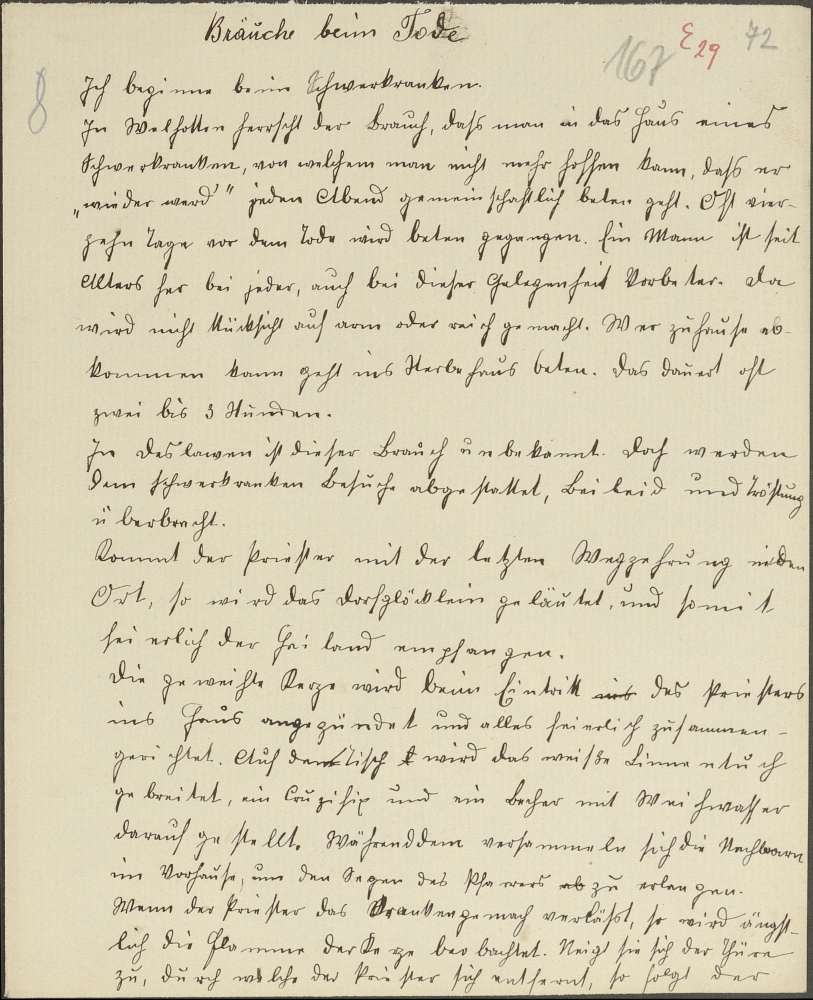 Bräuche beim Tode
167 E 29 72
8
Ich beginne beim Schwerkranken.
In Welhotten herrscht der Brauch, daſs man in das Haus eines
Schwerkranken, von welchem man nicht mehr hoffen kann, daſs er
„wieder werd'" jeden Abend gemeinschaftlich beten geht. Oft vier-
zehn Tage vor dem Tode wird beten gegangen. Ein Mann ist seit
Alters her bei jeder, auch bei dieser Gelegenheit Vorbeter. Da
wird nicht Rücksicht auf arm oder reich gemacht. Wer zuhause ab-
kommen kann geht ins Sterbehaus beten. Das dauert oft
zwei bis 3 Stunden.
In Deslawen ist dieser Brauch unbekannt. Doch werden
dem Schwerkranken Besuche abgestattet, Beileid und Tröstung
überbracht.
Kommt der Priester mit der letzten Wegzehrung in den
Ort, so wird das Dorfglöcklein geläutet, und somit
feierlich der Heiland empfangen.
Die geweihte Kerze wird beim Eintritt ins des Priesters
ins Haus angezündet und alles feierlich zusammen-
gerichtet. Auf dem Tisch t wird das weiſse Linnentuch
gebreitet, ein Cruzifix und ein Becher mit Weihwasser
darauf gestellt. Währenddem versammeln sich die Nachbarn
im Vorhause, um den Segen des Pfarrers ab zu erlangen.
Wenn der Priester das Krankengemach verläſst, so wird ängst-
lich die Flamme der Kerze beobachtet. Neigt sie sich der Thüre
zu, durch welche der Priester sich entfernt, so folgt der